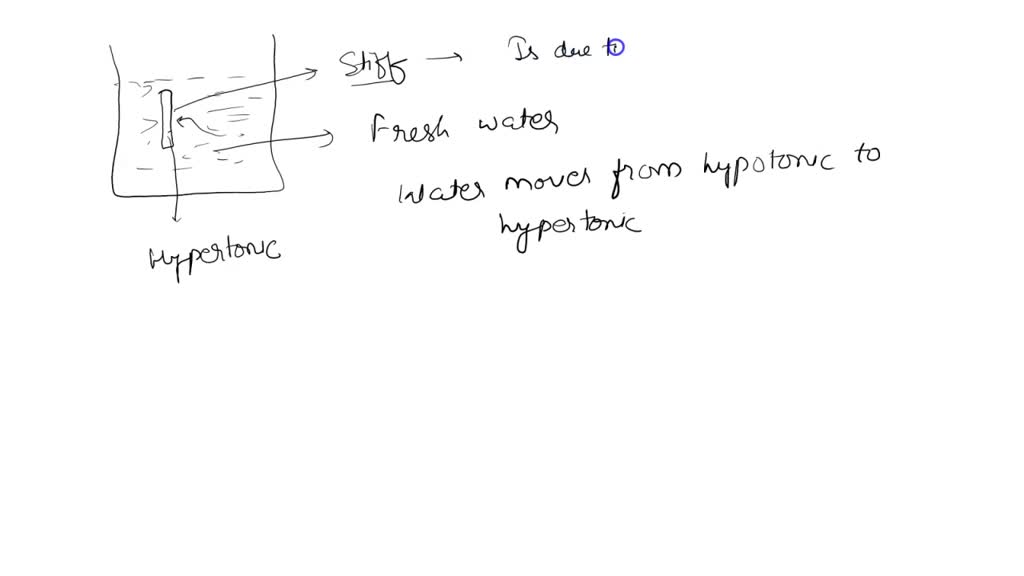 Stiff → Is due to
Fresh water
Water moves from hypotonic to
hypertonic
Hypertonic